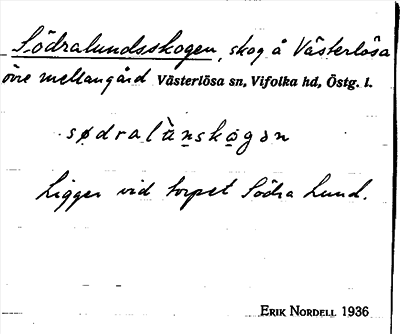 Södralundsskogen, skog å Västerlösa
övre mellangård Västerlösa sn, Vifolka hd, Östg. l.
sødralùnskogən
Ligger vid torpet Södra Lund.
ERIK NORDELL 1936